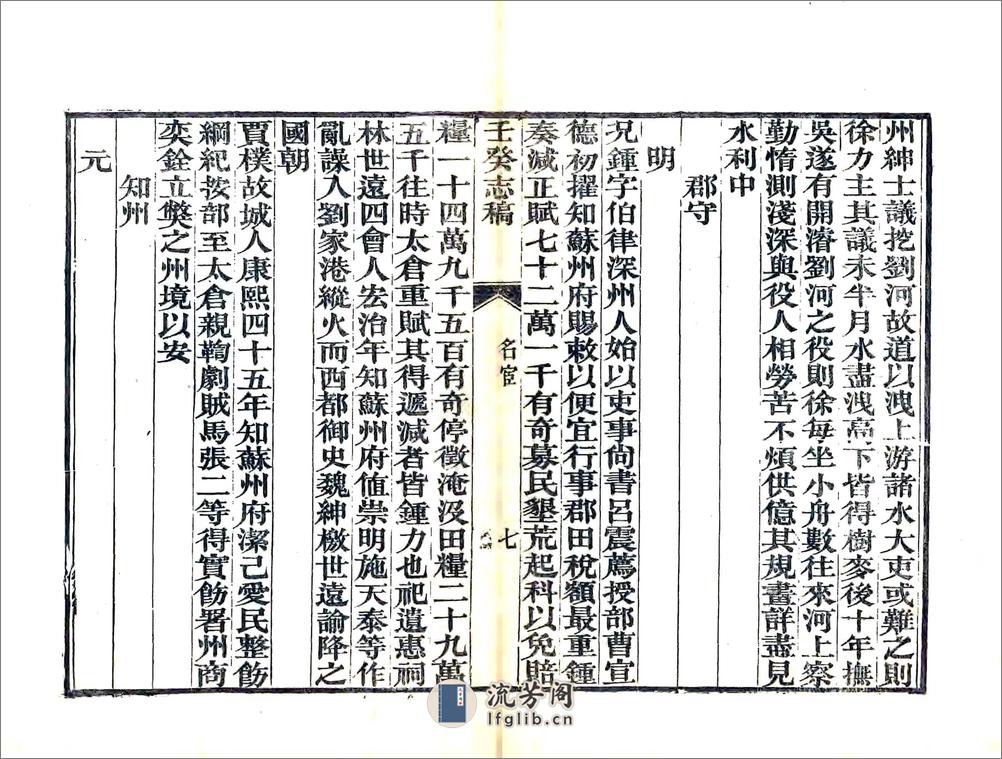 州紳士議挖劉河故道以洩上游諸水大吏或難之則
徐力主其議未半月水盡洩高下皆得樹麥後十年撫
吳遂有開濬劉河之役則徐每坐小舟數往來河上察
勤惰測淺深與役人相勞苦不煩供億其規畫詳盡見
水利中
郡守
明
況鍾字伯律深州人始以吏事尚書呂震薦授部曹宣
德初擢知蘇州府賜敕以便宜行事郡田稅額最重鍾
奏減正賦七十二萬一千有奇募民墾荒起科以免賠
壬癸志稿
名宦
七
糧一十四萬九千五百有奇停徵淹沒田糧二十九萬
五千往時太倉重賦其得遞減者皆鍾力也祀遺惠祠
林世遠四會人宏治年知蘇州府值崇明施天泰等作
亂譟入劉家港縱火而西都御史魏紳檄世遠諭降之
國朝
賈樸故城人康熙四十五年知蘇州府潔己愛民整飭
綱紀按部至太倉親鞫劇賊馬張二等得實飭署州商
奕銓立斃之州境以安
知州
元
流芳阁
lfglib.cn